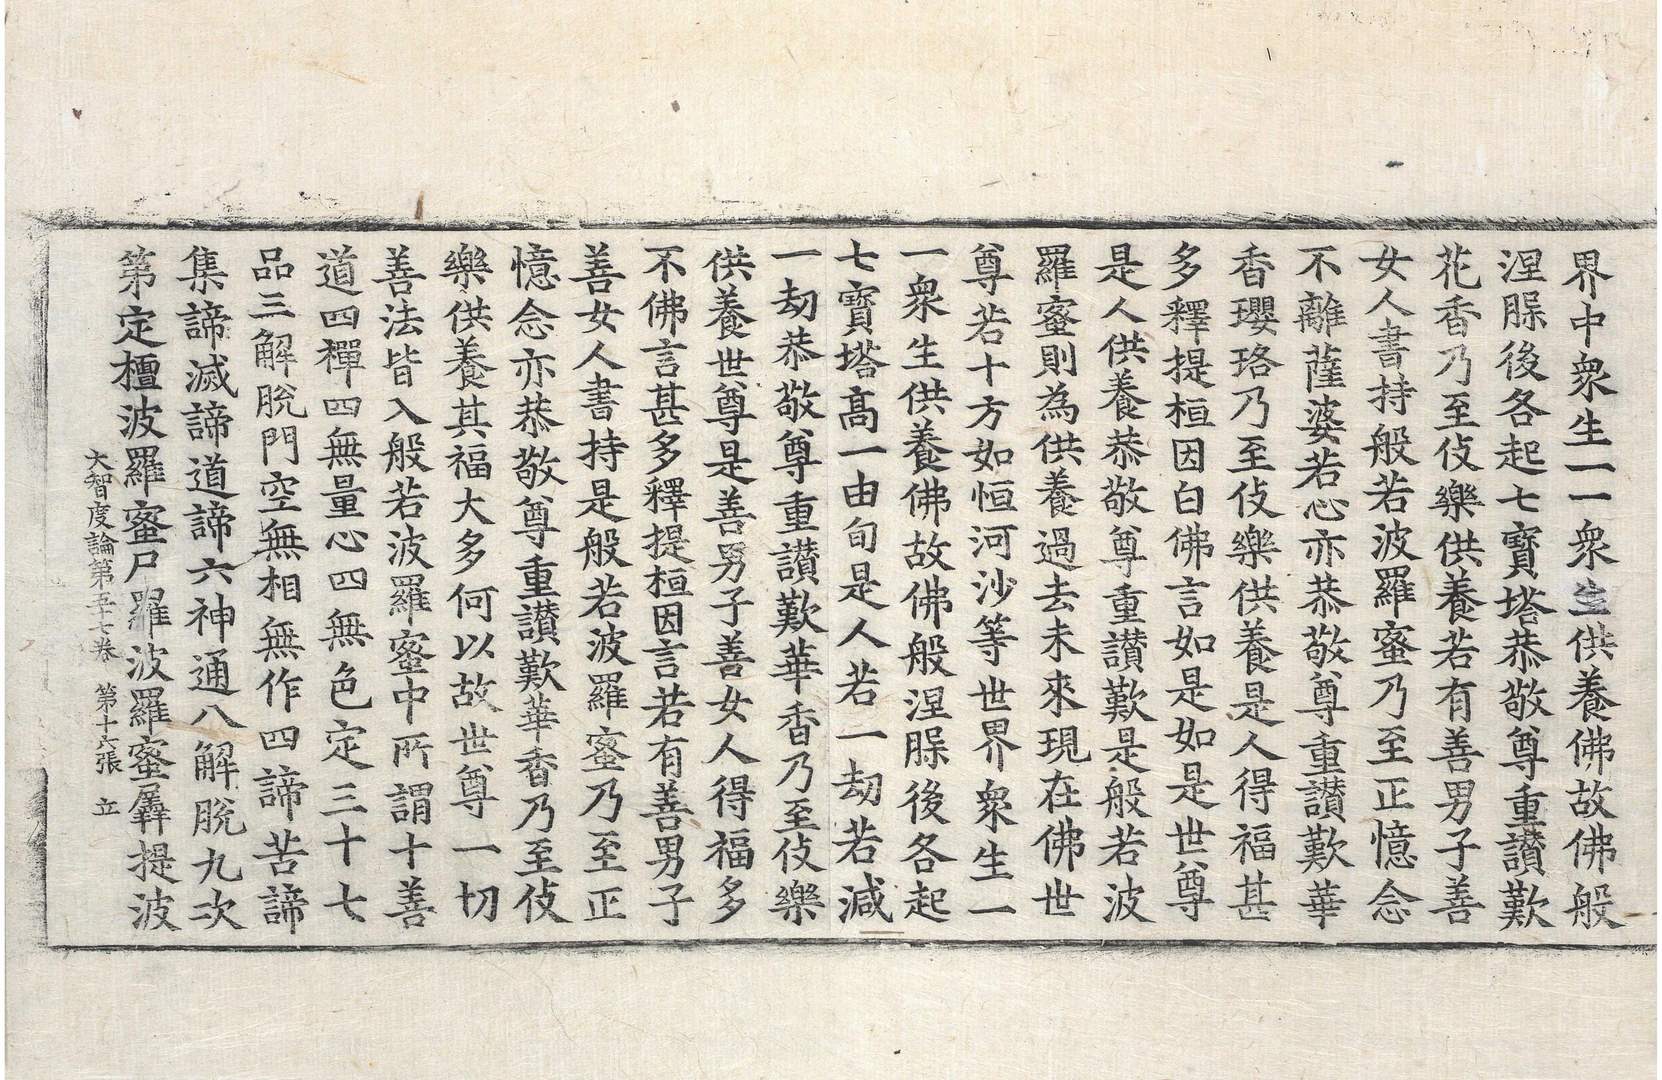 界中衆生一一衆生供養佛故佛般
涅槃後各起七寶塔恭敬尊重讃歎
花香乃至伎樂供養若有善男子善
女人書持般若波羅蜜乃至正憶念
不離薩婆若心亦恭敬尊重讃歎華
香瓔珞乃至伎樂供養是人得福甚
多釋提桓因白佛言如是如是世尊
是人供養恭敬尊重讃歎是般若波
羅蜜則為供養過去未來現在佛世
尊若十方如恒河沙等世界衆生一
一衆生供養佛故佛般涅槃後各起
七寶塔高一由旬是人若一劫若減
一劫恭敬尊重讃歎華香乃至伎樂
供養世尊是善男子善女人得福多
不佛言甚多釋提桓因言若有善男子
善女人書持是般若波羅蜜乃至正
憶念亦恭敬尊重讃歎華香乃至伎
樂供養其福大多何以故世尊一切
善法皆入般若波羅蜜中所謂十善
道四禪四無量心四無色定三十七
品三解脫門空無相無作四諦苦諦
集諦滅諦道諦六神通八解脫九次
第定檀波羅蜜尸羅波羅蜜羼提波
大智度論第五十七卷 第十六張 立